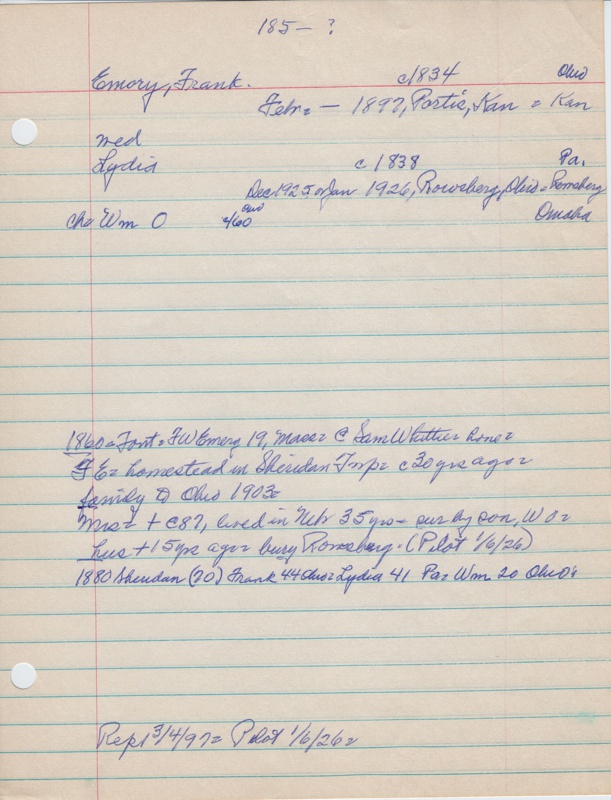 185- ?
Emory, Frank. c1834 Ohio
Febr = - 1897, Portis, Kan = Kan
med
Lydia c 1838 Pa.
Dec 1925 or Jan 1926, Rowsberg, Ohio = Romsberg
ch= Wm O c/60 Ohio Omaha
1860 = Font = FW Emery 19, Mass = C Sam Whittier home =
F E = homestead in Sheridan Twp = c 30 yrs ago =
family to Ohio 1903 =
Mrs = + c87, lived in Neb 35 yrs - sur by son, W O =
hus + 15 yrs ago = bury Romsburg. (Pilot 1/6/26)
1880 Sheridan (70) Frank 44 Ohio = Lydia 41 Pa = Wm 20 Ohio =
Rept 3/4/97 = Pilot 1/6/26 =